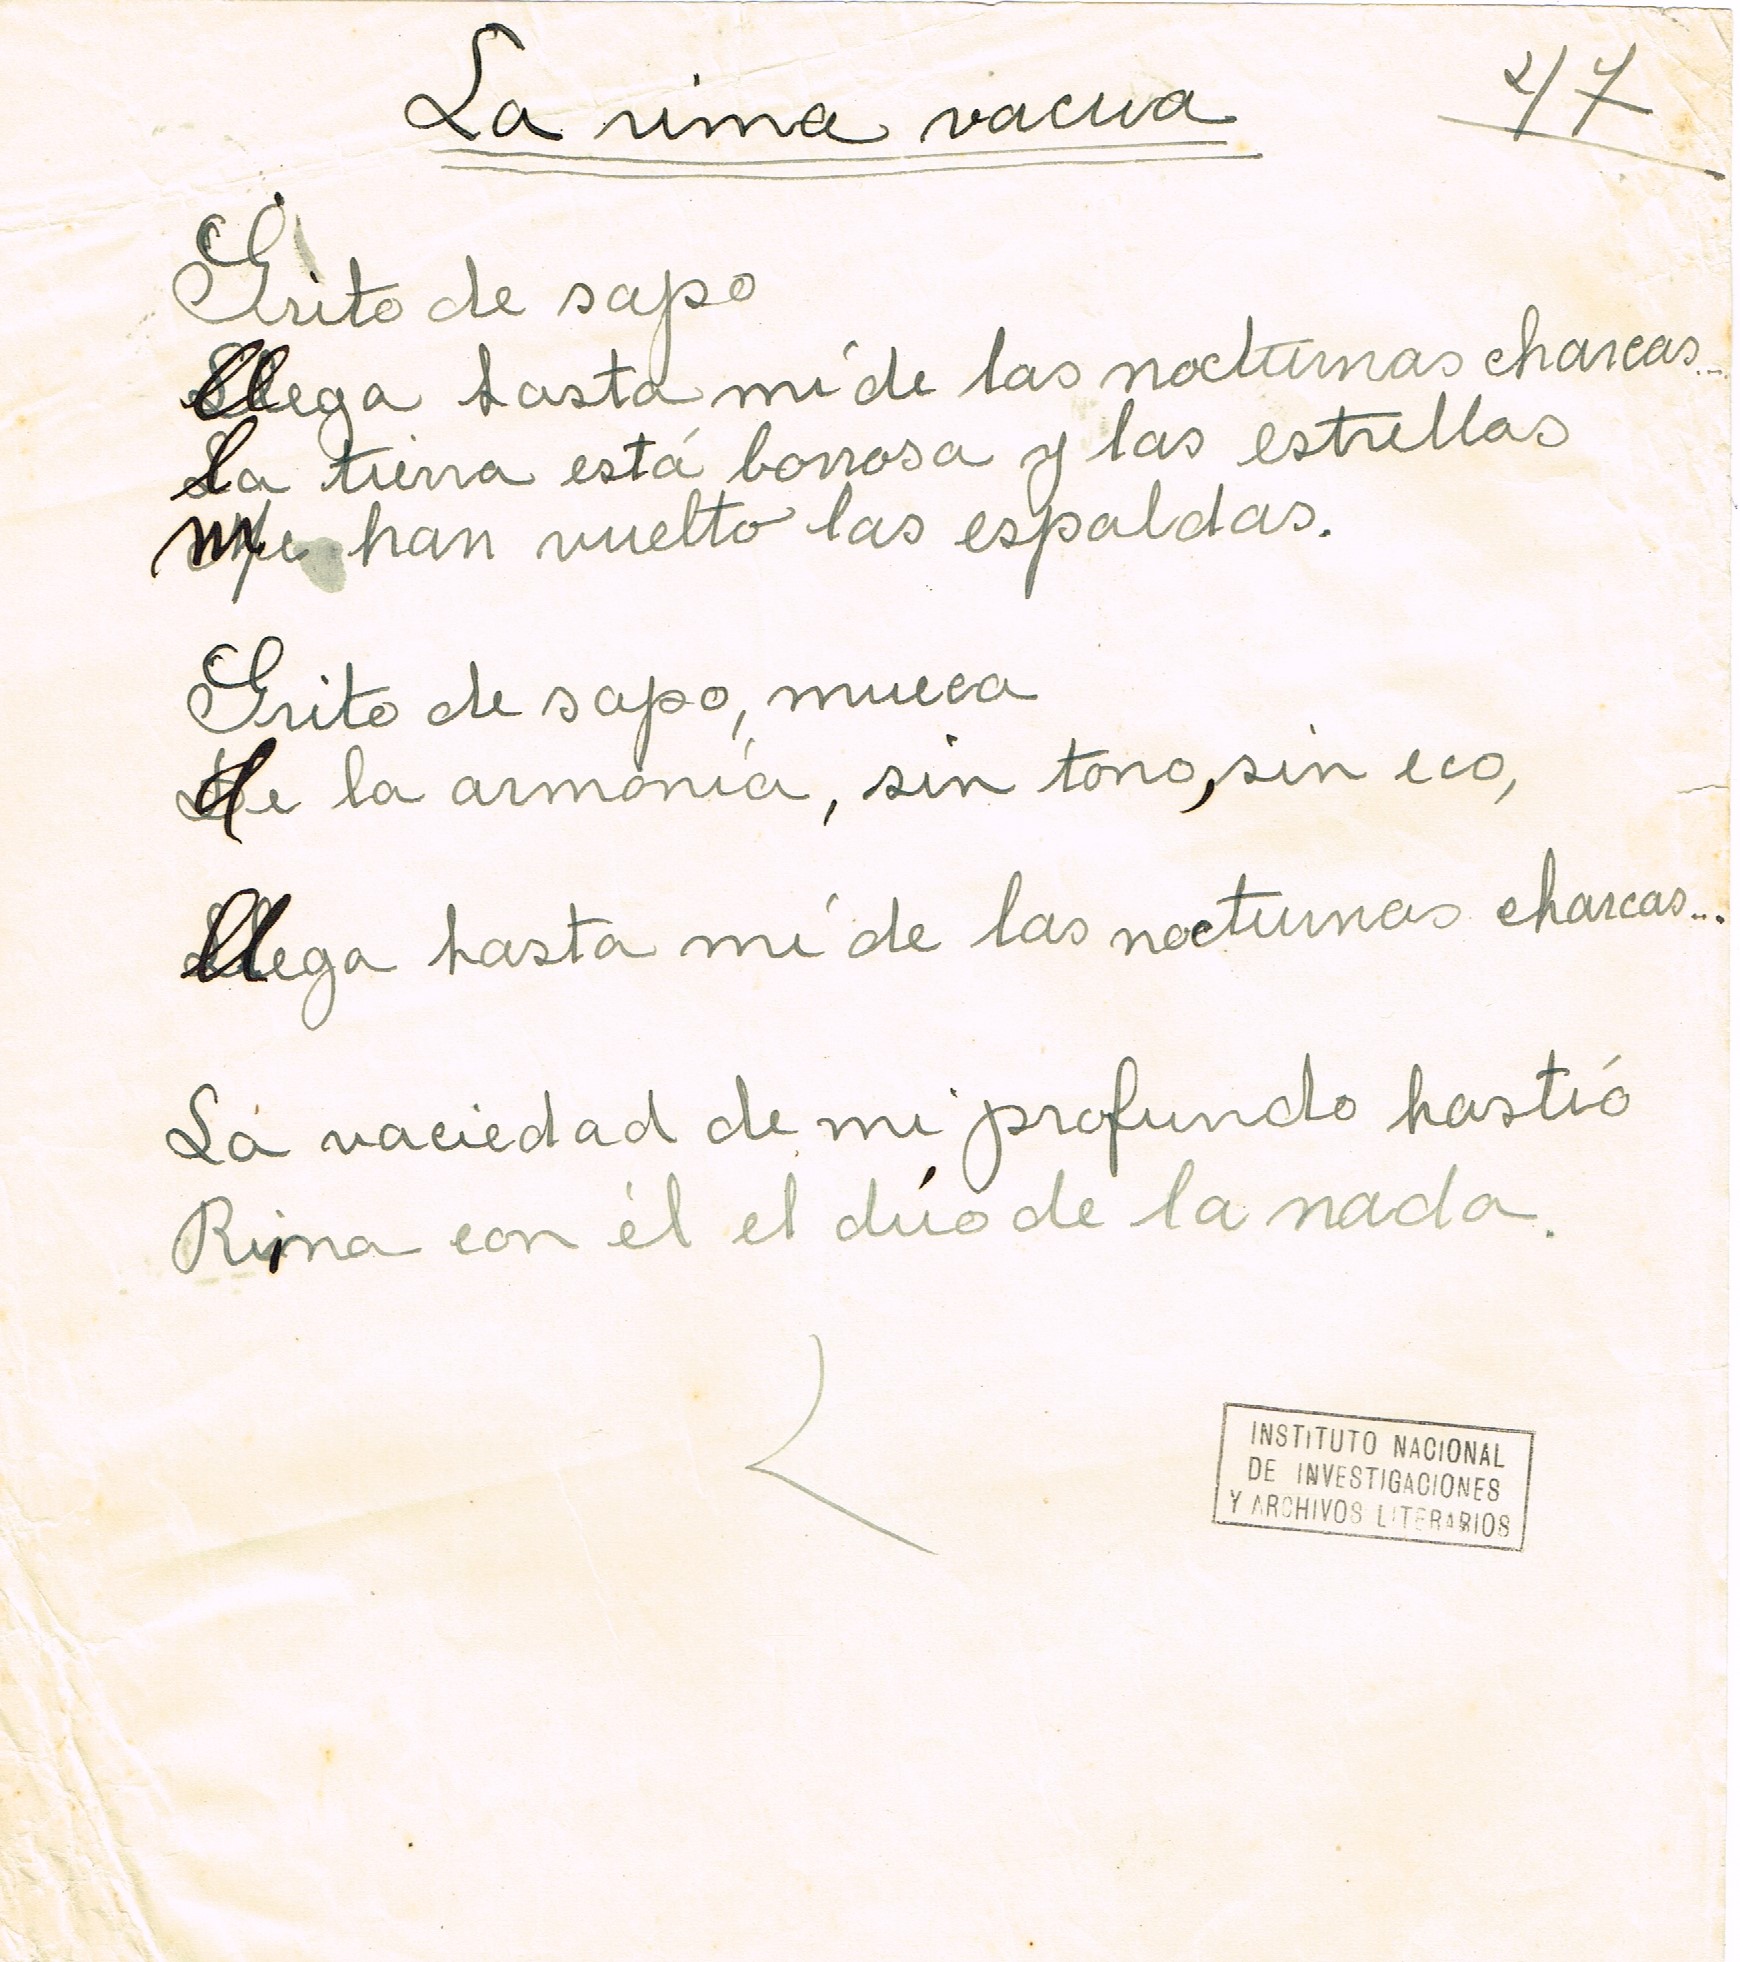 La rima vacua
47
Grito de sapo
llega hasta mí de las nocturnas charcas...
la tierra está borrosa y las estrellas
me han vuelto las espaldas.
Grito de sapo, mueca
de la armonía, sin tono, sin eco,
llega hasta mí de las nocturnas charcas...
La vaciedad de mi profundo hastío
Rima con él el dúo de la nada.
INSTITUTO NACIONAL
DE INVESTIGACIONES
Y ARCHIVOS LITERARIOS